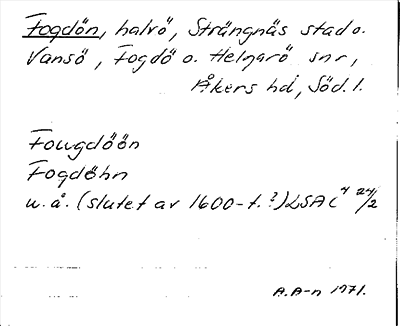 Fogdön, halvö, Strängnäs stad o.
Vansö, Fogdö o. Helgarö snr,
Åkers hd, Söd. l.
Fougdöön
Fogdöhn
u.å. (slutet av 1600-t.?) LSA C⁴ 24/2
A.A-n 1971.